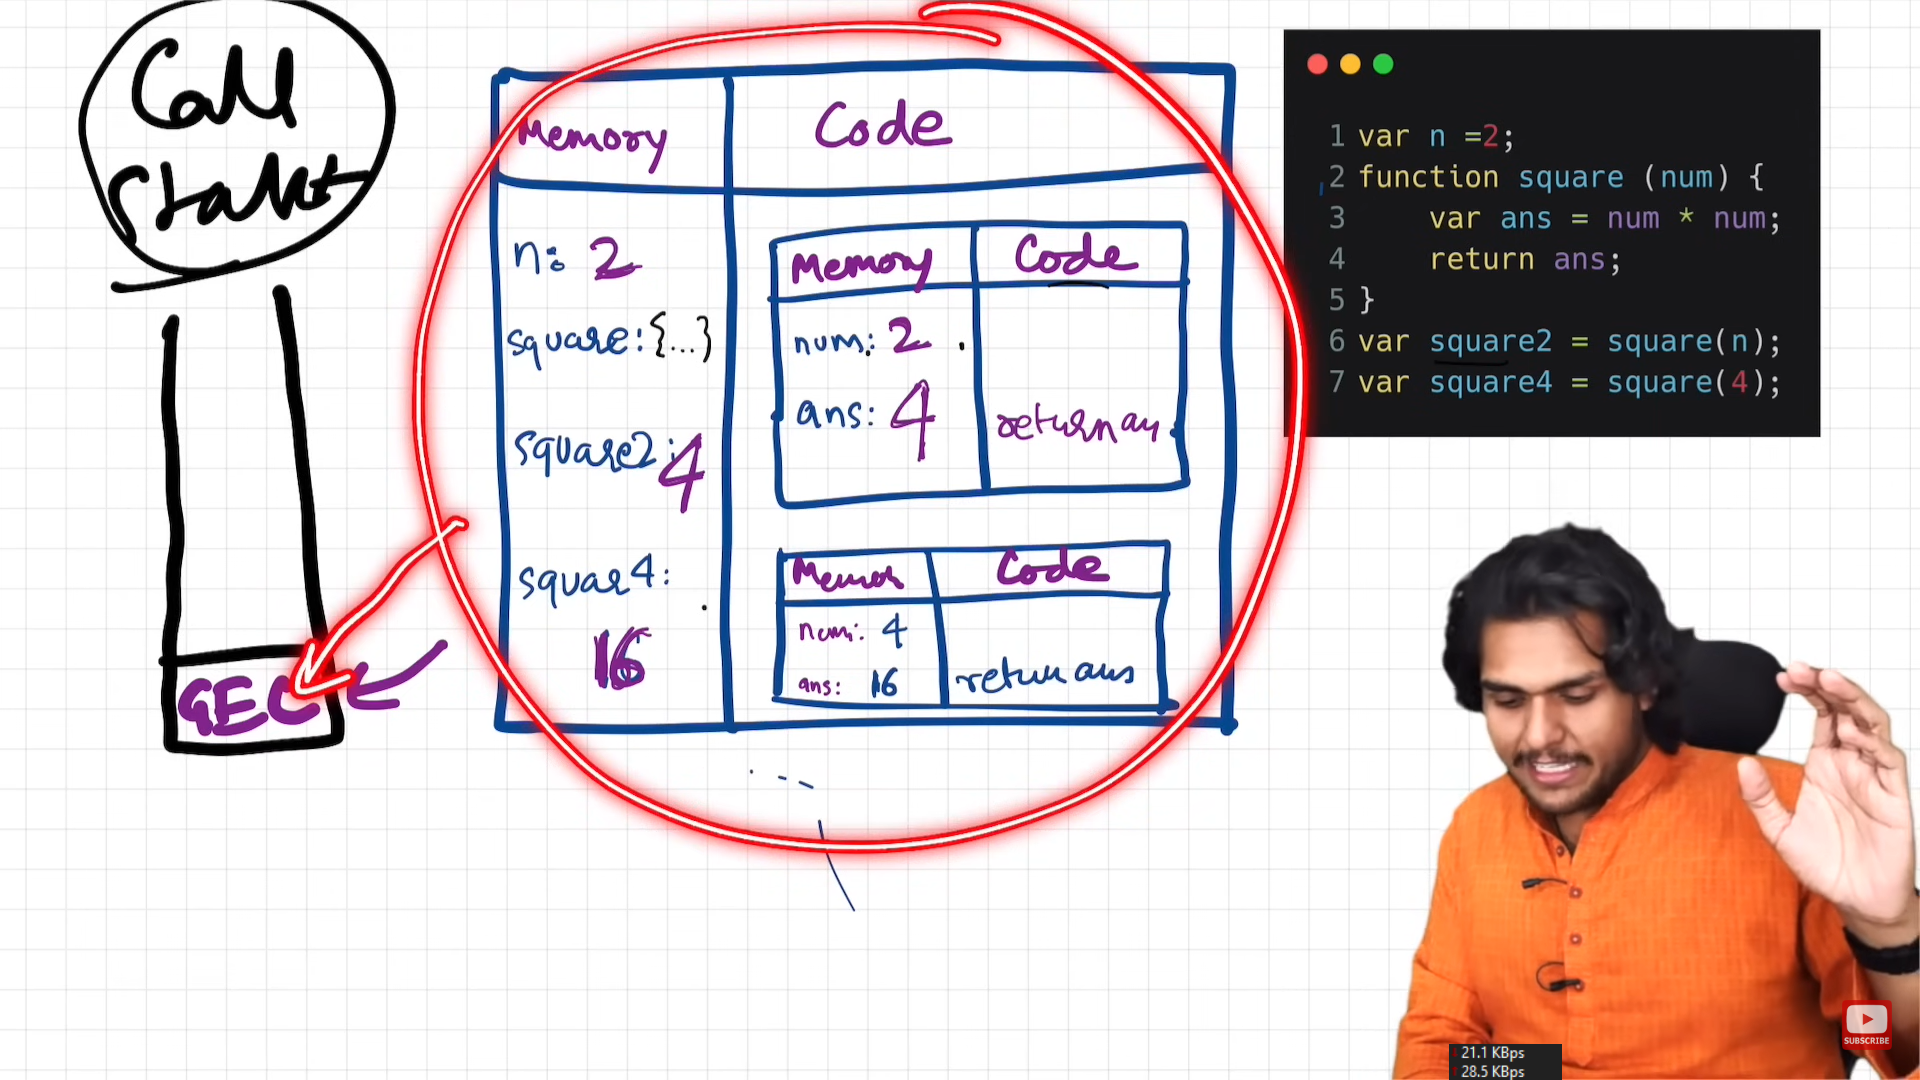 Call
Stakt
GEC
Memory
Code
n: 2
square: {...}
square2: 4
squar4:
16
Memory
Code
num: 2
ans: 4
return an
Code
num: 4
ans: 16
return ans
1 var n =2;
2 function square (num) {
3 var ans = num * num;
4 return ans;
5 }
6 var square2 = square(n);
7 var square4 = square(4);
SUBSCRIBE
21.1 KBps
28.5 KBps